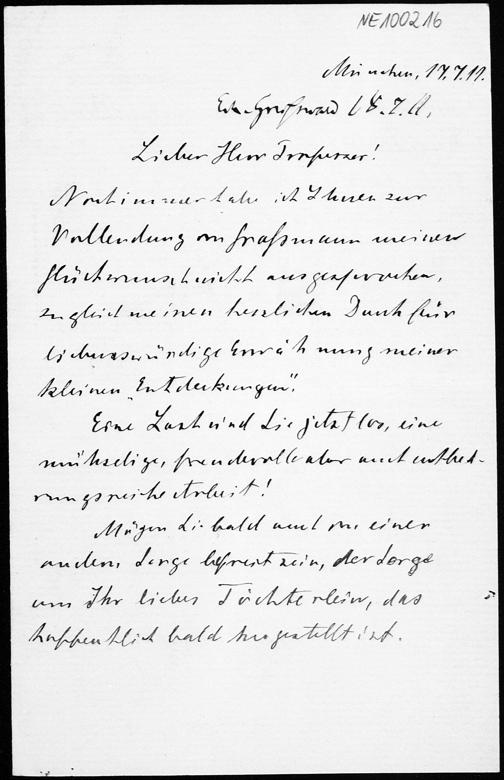 NE100216
München, 17.7.11.
Greifswald 18.7.11.
Lieber Herr Professor!
Noch immer habe ich Ihnen zur
Vollendung von Graßmann meinen
Glückwunsch nicht ausgesprochen,
zugleich meinen herzlichen Dank für
liebenswürdige Erwähnung meiner
kleinen „Entdeckungen".
Eine Last sind Sie jetzt los, eine
mühselige, freudevolle aber auch entbeh-
rungsreiche Arbeit!
Mögen Sie bald auch von einer
andern Sorge befreit sein, der Sorge
um Ihr liebes Töchterlein, das
hoffentlich bald hergestellt ist.